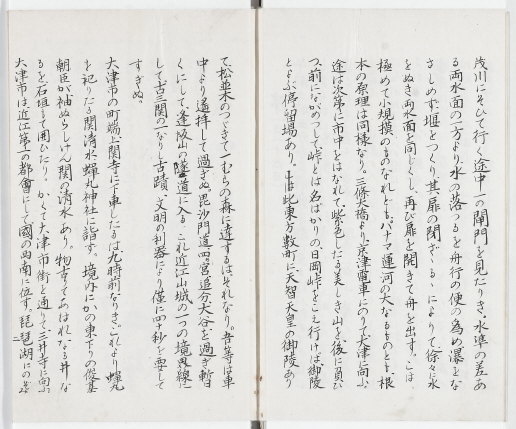 茂川にそひて行く途中一の閘門を見たりき、水準の差あ
る両水面の一方より、水の落つるを舟行の便の為め瀑をな
さしめず、堰とつくり、其扉の閉ざゝるゝによりて、徐々に水
をぬき、両水面を同じくし、再び扉を開きて舟を出す。こは
極めて小規模のものなれども、パナマ運河の大なるものとも、根
本の原理は同様なり。三條大橋より京津電車にのりて大津に向ふ、
途は次第に市中をはなれて、紫色したる美しき山を後に負ひ
つ、前にながめつして、峠とは名ばかりの日岡峠をこえ行けば、御陵
とよぶ停留場あり。此東方数町に、天智天皇の御陵あり
て、松並木のつゞきて一むらの森に達するは、それなり。吾等は車
中より遙拝して過ぎぬ。毘沙門道、四宮、追分、大谷を過ぎ、暫
くにして、逢坂山の隧道に入る。これ近江山城の二つの境界線に
して、古三関の一なりし古蹟、文明の利器により僅に四十秒を要して
すぎぬ。
大津市の町端上関寺に下車したるは九時前なりき。これより蝉丸
を祀りたる関清水蝉丸神社に詣す。境内にかの東下りの俊基
朝臣が袖ぬらしけん関の清水あり。物古りてあはれなる井な
るを石垣もて囲ひたり。かくて大津市街を通りて三井寺に向ふ。
大津市は、近江第一の都會にして、國の西南に位す。琵琶湖に